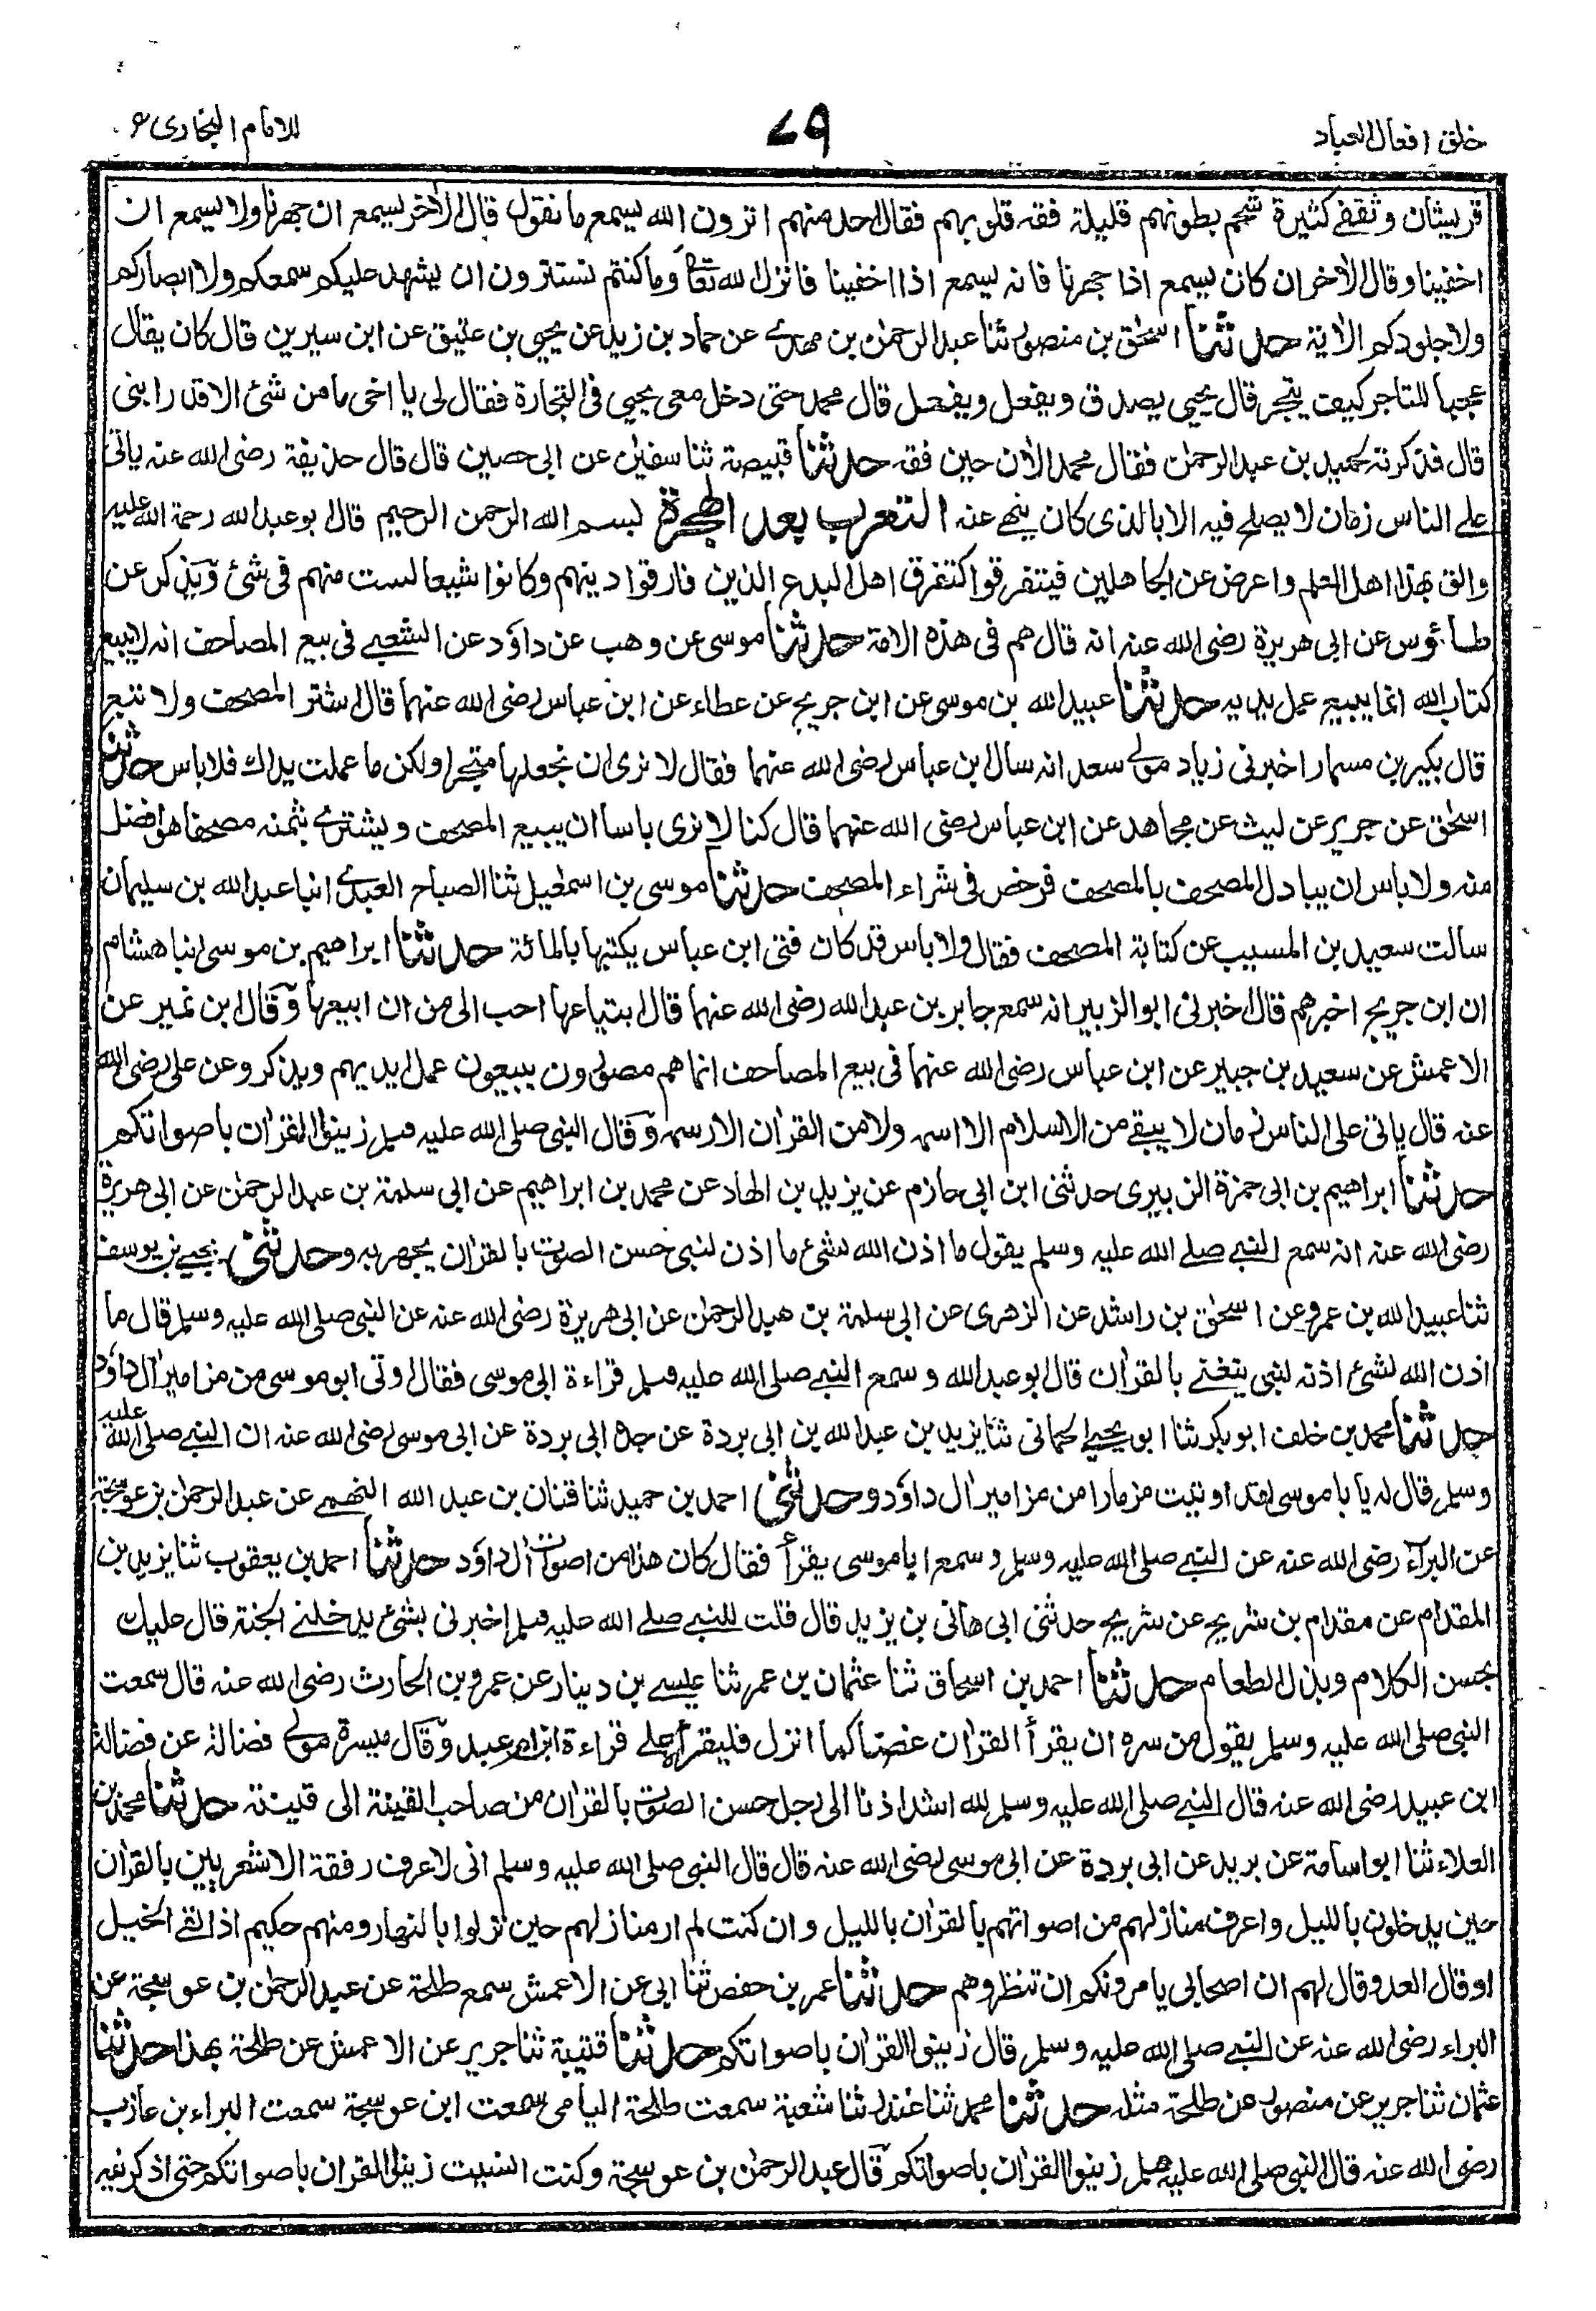 خلق افعال العباد
٧٩
للامام البخاري
قريشان وثقفي كثيرة شحم بطونهم قليلة فقه قلوبهم فقال احد منهم اترون الله يسمع ما نقول قال الاخر يسمع ان جهرنا ولا يسمع ان
اخفينا وقال الاخر ان كان يسمع اذا جهرنا فانه يسمع اذا اخفينا فانزل الله تعالى وما كنتم تستترون ان يشهد عليكم سمعكم ولا ابصاركم
ولا جلودكم الاية حدثنا اسحٰق بن منصور ثنا عبد الرحمٰن بن مهدي عن حماد بن زيد عن يحيى بن عتيق عن ابن سيرين قال كان يقال
عجبا للتاجر كيف يتجر قال يحيى يصدق ويفعل ويفعل قال محمد حتى دخل معي يحيى في التجارة فقال لي يا اخي ما من شئ الا قد رابني
قال فذكرته لحميد بن عبد الرحمٰن فقال محمد الاٰن حين فقه حدثنا قبيصة ثنا سفيٰن عن ابي حصين قال قال حذيفة رضي الله عنه ياتي
على الناس زمان لا يصلح فيه الا بالذي كان ينهى عنه التعرب بعد الهجرة بسم الله الرحمن الرحيم قال ابو عبد الله رحمة الله عليه
والق بهذا اهل العلم واعرض عن الجاهلين فيتفرقوا كتفرق اهل البدع الذين فارقوا دينهم وكانوا شيعا لست منهم في شئ ويذكر عن
طاؤس عن ابي هريرة رضي الله عنه انه قال هم في هذه الامة حدثنا موسى عن وهب عن داؤد عن الشعبي في بيع المصاحف انه لا يبيع
كتاب الله انما يبيع عمل يديه حدثنا عبيد الله بن موسى عن ابن جريج عن عطاء عن ابن عباس رضي الله عنهما قال اشتر المصحف ولا تبع
قال بكير بن مسمار اخبرني زياد مولى سعد انه سال ابن عباس رضي الله عنهما فقال لا نرى ان نجعلها متجرا ولكن ما عملت يداك فلا باس حدثنا
اسحٰق عن جرير عن ليث عن مجاهد عن ابن عباس رضي الله عنهما قال كنا لا نرى باسا ان يبيع المصحف ويشتري بثمنه مصحفا هو افضل
منه ولا باس ان يبادل المصحف بالمصحف فرخص في شراء المصحف حدثنا موسى بن اسمٰعيل ثنا الصباح العبدي انبا عبد الله بن سليمان
سالت سعيد بن المسيب عن كتابة المصحف فقال ولا باس قد كان فتى ابن عباس يكتبها بالمائة حدثنا ابراهيم بن موسى انبا هشام
ان ابن جريج اخبرهم قال اخبرني ابو الزبير انه سمع جابر بن عبد الله رضي الله عنهما قال ابتياعها احب الي من ان ابيعها وقال ابن نمير عن
الاعمش عن سعيد بن جبير عن ابن عباس رضي الله عنهما في بيع المصاحف انما هم مصورون يبيعون عمل ايديهم ويذكر وعن علي رضي الله
عنه قال ياتي على الناس زمان لا يبقى من الاسلام الا اسمه ولا من القراٰن الا رسمه وقال النبي صلى الله عليه وسلم زينوا القراٰن باصواتكم
حدثنا ابراهيم بن ابي حمزة الزبيري حدثني ابن ابي حازم عن يزيد بن الهاد عن محمد بن ابراهيم عن ابي سلمة بن عبد الرحمٰن عن ابي هريرة
رضي الله عنه انه سمع النبي صلى الله عليه وسلم يقول ما اذن الله لشئ ما اذن لنبي حسن الصوت بالقراٰن يجهر به وحدثني يحيى بن يوسف
ثنا عبيد الله بن عمرو عن اسحٰق بن راشد عن الزهري عن ابي سلمة بن عبد الرحمٰن عن ابي هريرة رضي الله عنه عن النبي صلى الله عليه وسلم قال ما
اذن الله لشئ اذنه لنبي يتغنى بالقراٰن قال ابو عبد الله وسمع النبي صلى الله عليه وسلم قراءة ابي موسى فقال اوتي ابو موسى من مزامير اٰل داؤد
حدثنا محمد بن خلف ابو بكر ثنا ابو يحيى الحماني ثنا يزيد بن عبد الله بن ابي بردة عن جده ابي بردة عن ابي موسى رضي الله عنه ان النبي صلى الله عليه
وسلم قال له يا ابا موسى لقد اوتيت مزمارا من مزامير اٰل داؤد وحدثني احمد بن حميد ثنا قنان بن عبد الله النهمي عن عبد الرحمٰن بن عوسجة
عن البراء رضي الله عنه عن النبي صلى الله عليه وسلم وسمع ابا موسى يقرأ فقال كان هذا من اصوات اٰل داؤد حدثنا احمد بن يعقوب ثنا يزيد بن
المقدام عن مقدام بن شريح عن شريح حدثني ابي هاني بن يزيد قال قلت للنبي صلى الله عليه وسلم اخبرني بشئ يدخلني الجنة قال عليك
بحسن الكلام وبذل الطعام حدثنا احمد بن اسحاق ثنا عثمان بن عمر ثنا عيسى بن دينار عن عمرو بن الحارث رضي الله عنه قال سمعت
النبي صلى الله عليه وسلم يقول من سره ان يقرأ القراٰن غضا كما انزل فليقرأ على قراءة ابن ام عبد وقال ميسرة مولى فضالة عن فضالة
ابن عبيد رضي الله عنه قال النبي صلى الله عليه وسلم لله اشد اذنا الى رجل حسن الصوت بالقراٰن من صاحب القينة الى قينته حدثنا محمد بن
العلاء ثنا ابو اسامة عن بريد عن ابي بردة عن ابي موسى رضي الله عنه قال قال النبي صلى الله عليه وسلم اني لاعرف رفقة الاشعريين بالقراٰن
حين يدخلون بالليل واعرف منازلهم من اصواتهم بالقراٰن بالليل وان كنت لم ار منازلهم حين نزلوا بالنهار ومنهم حكيم اذا لقى الخيل
او قال العدو قال لهم ان اصحابي يامرونكم ان تنظروهم حدثنا عمر بن حفص ثنا ابي عن الاعمش سمع طلحة عن عبد الرحمٰن بن عوسجة عن
البراء رضي الله عنه عن النبي صلى الله عليه وسلم قال زينوا القراٰن باصواتكم حدثنا قتيبة ثنا جرير عن الاعمش عن طلحة بهذا حدثنا
عثمان ثنا جرير عن منصور عن طلحة مثله حدثنا محمد ثنا غندر ثنا شعبة سمعت طلحة اليامي سمعت ابن عوسجة سمعت البراء بن عازب
رضي الله عنه قال النبي صلى الله عليه وسلم زينوا القراٰن باصواتكم قال عبد الرحمٰن بن عوسجة وكنت انسيت زينوا القراٰن باصواتكم حتى اذكرنيه